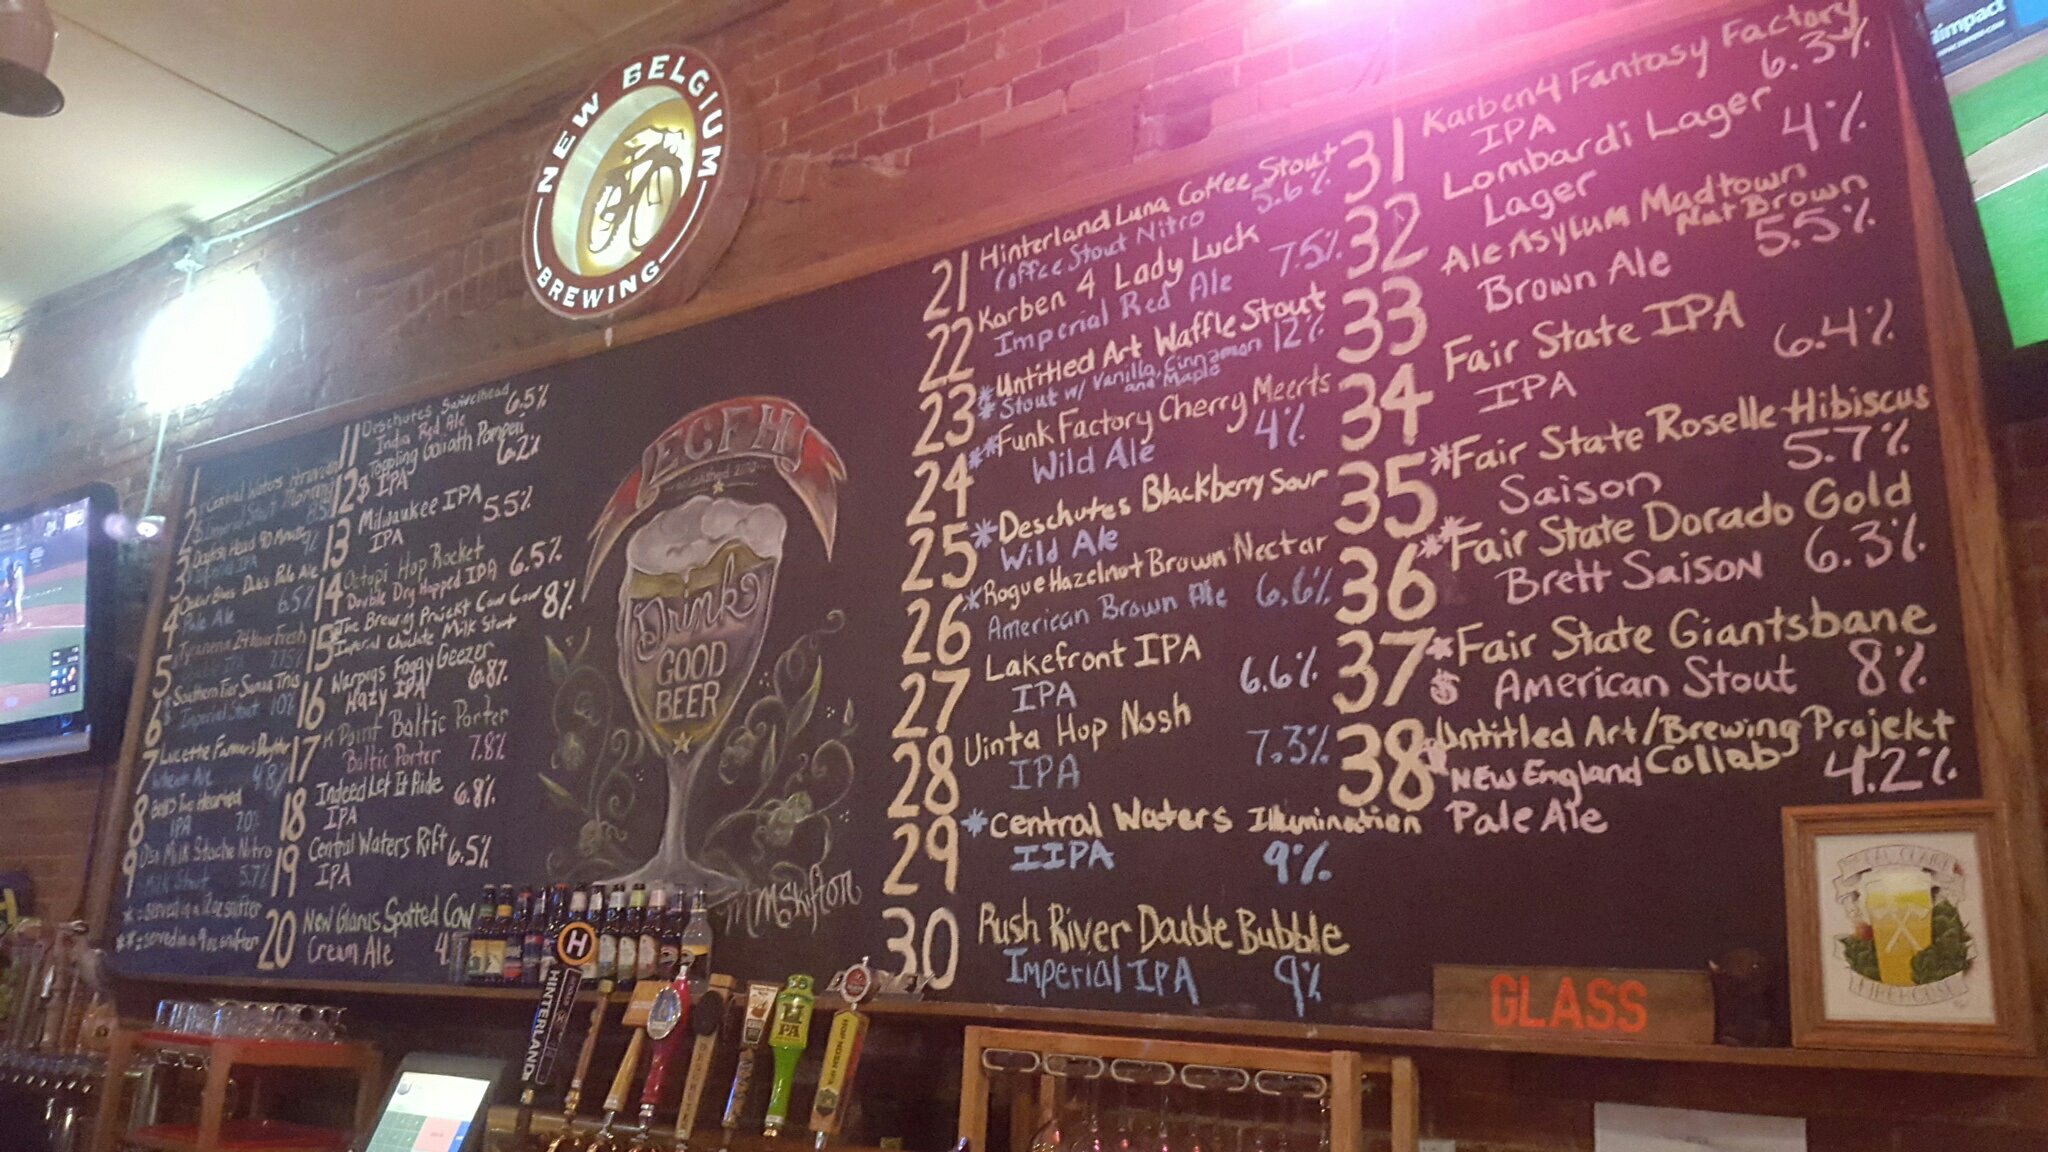 NEW BELGIUM
BREWING
aimpact
1 Central Waters
$ Imperial Stout
8.5%
2 Dogfish Head 90 Minute
IPA 9%
3 Pale Ale
Pale Ale 6.5%
4 Tyranena 24 Hour Fresh
5 *Southern Tier Samoa This
$ Imperial Stout 10%
6
7 Lucette Farmer's Daughter
Wheat Ale 4.8%
8 Bell's Two Hearted
IPA 7.0%
9 Milk Stache Nitro
Milk Stout 5.7%
*=served in a 12oz snifter
**=served in a 9oz snifter
11 Deschutes Swivelhead
India Red Ale 6.5%
12 Toppling Goliath Pompeii
$ IPA 6.2%
13 Milwaukee IPA
IPA 5.5%
14 Octopi Hop Rocket
Double Dry Hopped IPA 6.5%
15 The Brewing Projekt Cow Cow
Imperial Milk Stout 8%
16 Warpigs Foggy Geezer
Hazy IPA 6.8%
17 * Point Baltic Porter
Baltic Porter 7.8%
18 Indeed Let It Ride
IPA 6.8%
19 Central Waters Rift
IPA 6.5%
20 New Glarus Spotted Cow
Cream Ale 4.
ECFH
Drink
GOOD
BEER
M Skifton
21 Hinterland Luna Coffee Stout
Coffee Stout Nitro 5.6%
22 Karben 4 Lady Luck
Imperial Red Ale 7.5%
23 *Untitled Art Waffle Stout
* Stout w/ Vanilla, Cinnamon 12%
and Maple
24 **Funk Factory Cherry Meerts
Wild Ale 4%
25 *Deschutes Blackberry Sour
Wild Ale
26 *Rogue Hazelnut Brown Nectar
American Brown Ale 6.6%
27 Lakefront IPA
IPA 6.6%
28 Uinta Hop Nosh
IPA 7.3%
29 *Central Waters Illumination
IIPA 9%
30 Rush River Double Bubble
Imperial IPA 9%
31 Karben4 Fantasy Factory
IPA 6.3%
32 Lombardi Lager
Lager 4%
33 Ale Asylum Madtown
Nut Brown
Brown Ale 5.5%
34 Fair State IPA
IPA 6.4%
35 *Fair State Roselle Hibiscus
Saison 5.7%
36 **Fair State Dorado Gold
Brett Saison 6.3%
37 *Fair State Giantsbane
$ American Stout 8%
38 Untitled Art/Brewing Projekt
Collab
New England 4.2%
Pale Ale
GLASS
H
HINTERLAND
IPA
HOP NOSH IPA
EAU CLAIRE